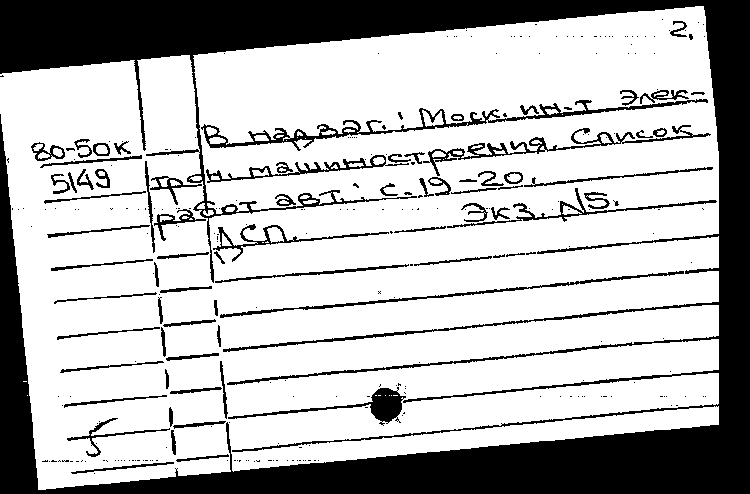 2.
В надзаг.: Моск. ин-т элек-
80-50к
5149
трон. машиностроения. Список
работ авт.: с. 19-20.
ДСП. Экз. №5.
5